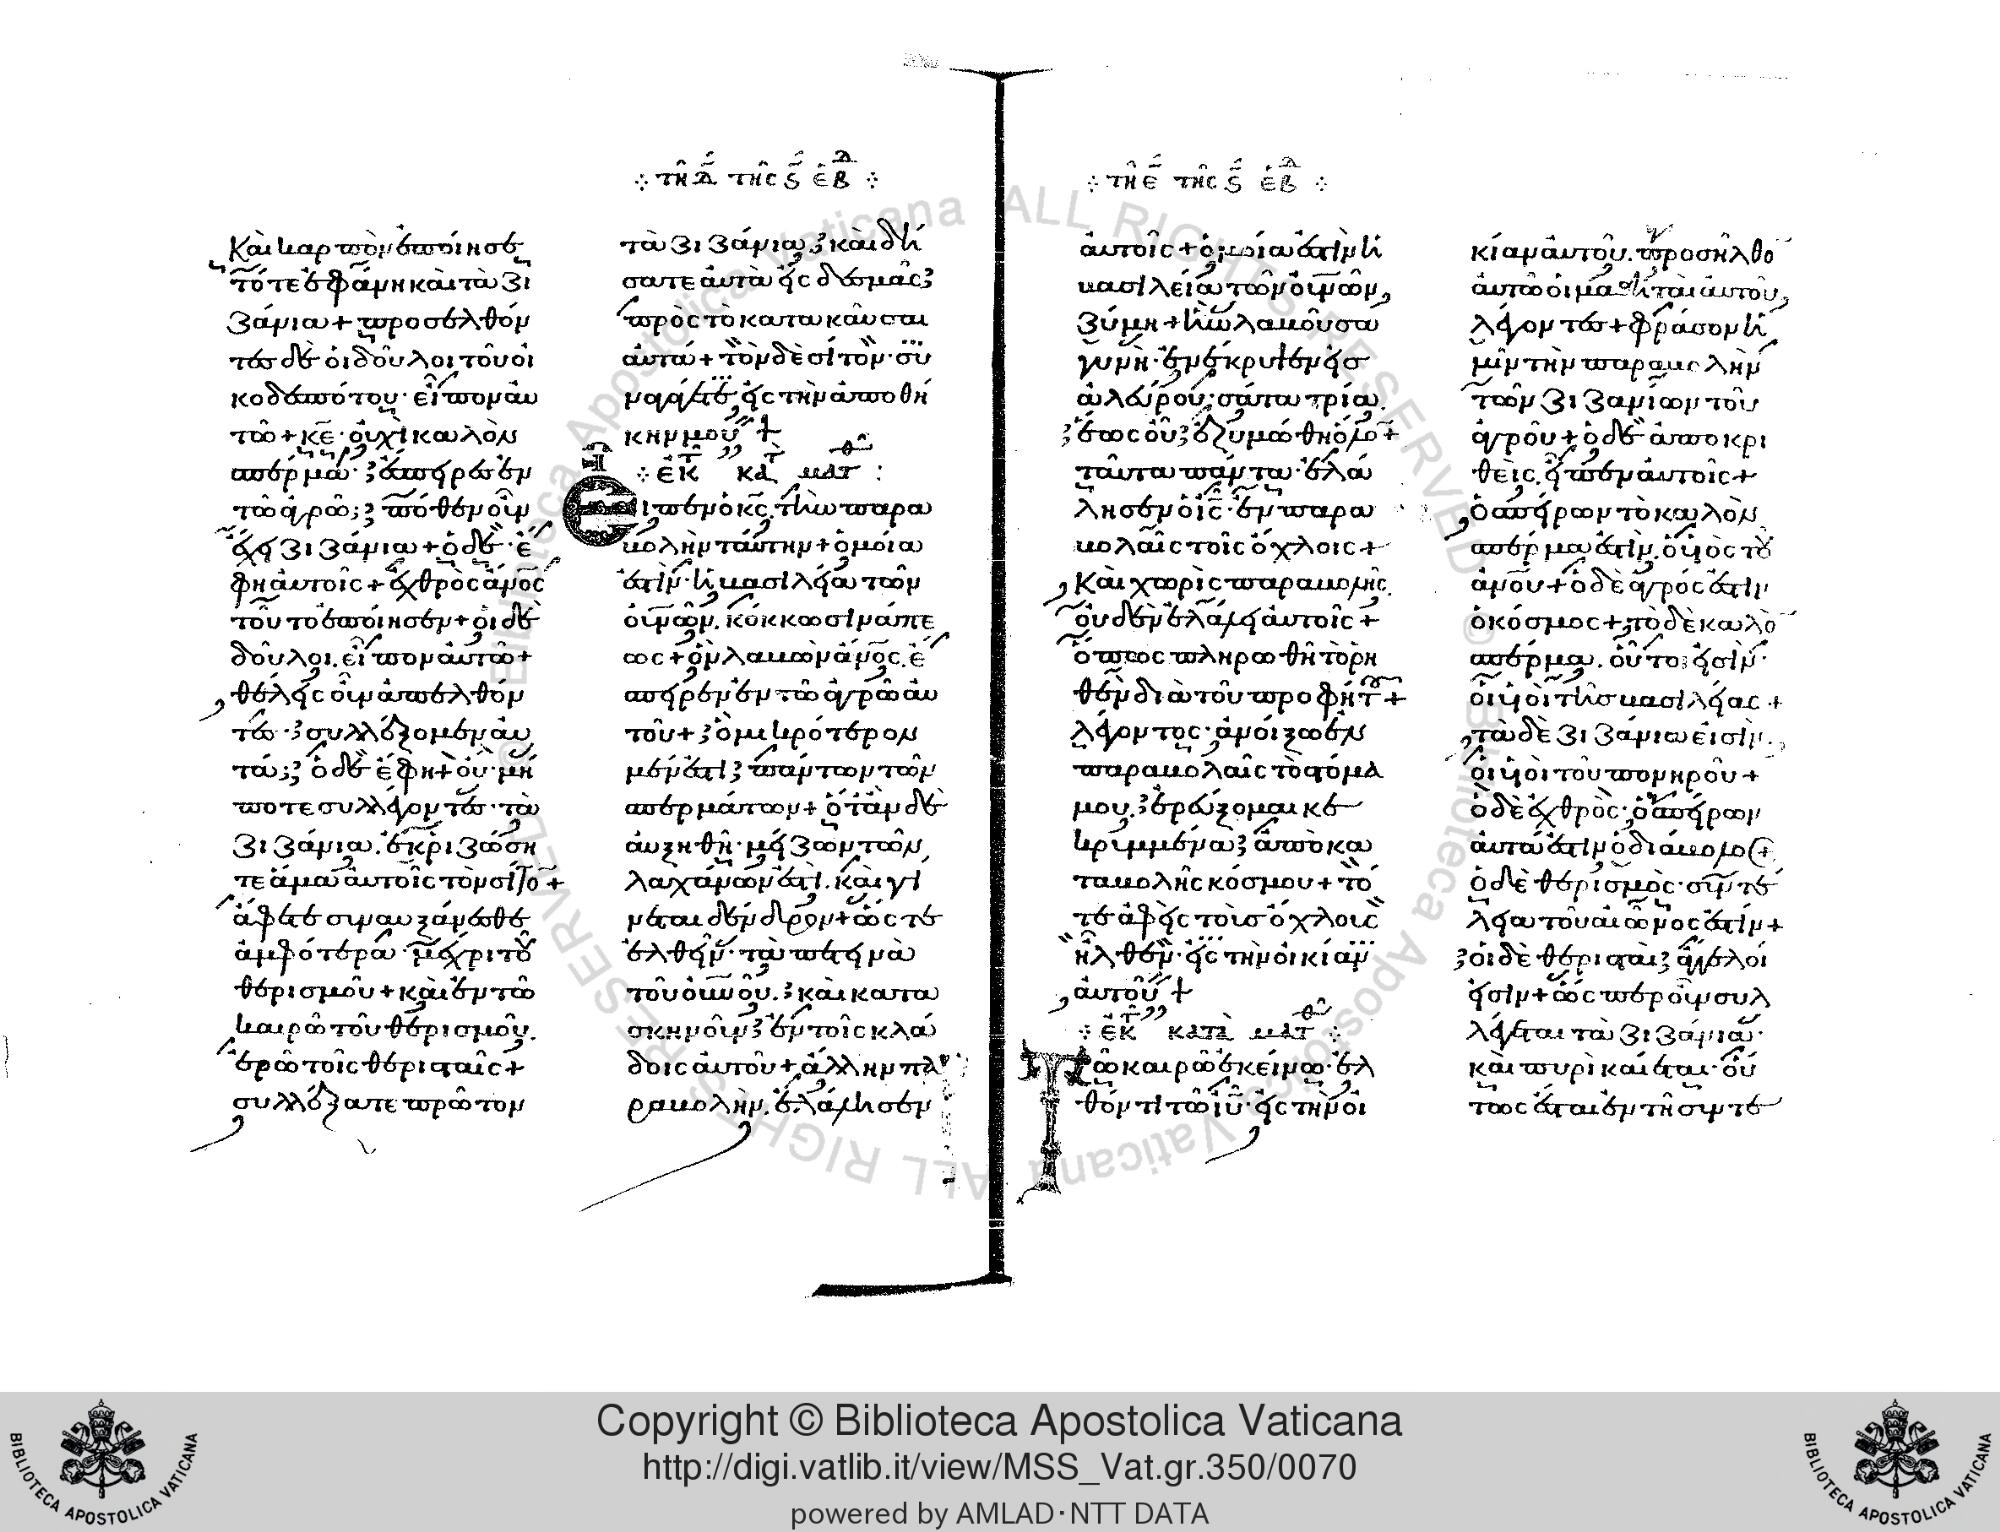 τῇ δ τῆς ς ἑβδ
Καὶ καρπὸν ἐποίησε
τότε ἐφάνη καὶ τὰ ζι
ζάνια + προσελθόν
τες δὲ οἱ δοῦλοι τοῦ οἰ
κοδεσπότου· εἶπον αὐ
τῶ + κε· οὐχὶ καλὸν
σπέρμα· ἔσπειρες ἐν
τῶ ἀγρῶ; πόθεν οὖν
ἔχει ζιζάνια + ὁ δὲ· ἔ
φη αὐτοῖς + ἐχθρὸς ἄνος
τοῦτο ἐποίησεν + οἱ δὲ
δοῦλοι. εἶπον αὐτῶ +
θέλεις οὖν ἀπελθόν
τες· συλλέξομεν αὐ
τά; ὁ δὲ ἔφη + οὔ· μή
ποτε συλλέγοντες· τὰ
ζιζάνια. ἐκριζώση
τε ἅμα αὐτοῖς τὸν σῖτον +
ἄφετε συναυξάνεσθε
ἀμφότερα· μέχρι τοῦ
θερισμοῦ + καὶ ἐν τῶ
καιρῶ τοῦ θερισμοῦ.
ἐρῶ τοῖς θερισταῖς +
συλλέξατε πρῶτον
τὰ ζιζάνια, καὶ δή
σατε αὐτὰ εἰς δεσμὰς
πρὸς τὸ κατακαῦσαι
αὐτά + τὸν δὲ σῖτον· συ
ναγάγετε εἰς τὴν ἀποθή
κην μου +
ἐκ τ κατ ματθ :
Εἶπεν ὁ κς. τὴν παρα
βολὴν ταύτην + ὁμοία
ἐστὶν· ἡ βασιλεία τῶν
οὐνῶν. κόκκω σινάπε
ως + ὃν λαβὼν ἄνος. ἔ
σπειρεν ἐν τῶ ἀγρῶ αὐ
τοῦ + ὃ μικρότερον
μέν ἐστι πάντων τῶν
σπερμάτων + ὅταν δὲ
αὐξηθῆ· μεῖζων τῶν
λαχάνων ἐστὶ. καὶ γί
νεται δένδρον + ὥστε
ἐλθεῖν· τὰ πετεινὰ
τοῦ οὐνοῦ. καὶ κατα
σκηνοῦν ἐν τοῖς κλά
δοις αὐτοῦ + ἄλλην πα
ραβολὴν. ἐλάλησεν
τῇ ε τῆς ς ἑβδ
αὐτοῖς + ὁμοία ἐστὶν ἡ
βασιλεία τῶν οὐνῶν,
ζύμη + ἣν λαβοῦσα
γυνὴ· ἐνέκρυψεν εἰς
ἀλεύρου· σάτα τρία.
ἕως οὗ ἐζυμώθη ὅλον +
ταῦτα πάντα· ἐλά
λησεν ὁ ις· ἐν παρα
βολαῖς τοῖς ὄχλοις +
Καὶ χωρὶς παραβολῆς.
οὐδὲν ἐλάλει αὐτοῖς +
ὅπως πληρωθῆ τὸ ῥη
θὲν διὰ τοῦ προφήτ +
λέγοντος· ἀνοίξω ἐν
παραβολαῖς τὸ στόμα
μου. ἐρεύξομαι κε
κρυμμένα ἀπὸ κα
ταβολῆς κόσμου + τό
τε ἀφεὶς τοὺς ὄχλους
ἦλθεν· εἰς τὴν οἰκίαν
αὐτοῦ +
ἐκ τ κατὰ ματθ
Τῶ καιρῶ ἐκείνω· ἐλ
θόντι τῶ ιυ· εἰς τὴν οἰ
κίαν αὐτοῦ. προσῆλθον
αὐτῶ οἱ μαθηταὶ αὐτοῦ,
λέγοντες + φράσον ἡ
μῖν τὴν παραβολὴν
τῶν ζιζανίων τοῦ
ἀγροῦ + ὁ δὲ ἀποκρι
θεὶς. εἶπεν αὐτοῖς +
ὁ σπείρων τὸ καλὸν
σπέρμα ἐστὶν. ὁ υἱὸς τοῦ
ἀνου + ὁ δὲ ἀγρός ἐστιν
ὁ κόσμος + τὸ δὲ καλὸν
σπέρμα. οὗτοί εἰσιν·
οἱ υἱοὶ τῆς βασιλείας +
τὰ δὲ ζιζάνια εἰσὶν.
οἱ υἱοὶ τοῦ πονηροῦ +
ὁ δὲ ἐχθρὸς· ὁ σπείρων
αὐτά ἐστιν ὁ διάβολος +
ὁ δὲ θερισμὸς· συντέ
λεια τοῦ αἰῶνος ἐστίν +
οἱ δὲ θερισταὶ ἄγγελοί
εἰσιν + ὥσπερ οὖν συλ
λέγεται τὰ ζιζάνια·
καὶ πυρὶ καίεται· οὕ
τως ἔσται ἐν τῆ συντε
Copyright © Biblioteca Apostolica Vaticana
http://digi.vatlib.it/view/MSS_Vat.gr.350/0070
powered by AMLAD·NTT DATA
BIBLIOTECA APOSTOLICA VATICANA
BIBLIOTECA APOSTOLICA VATICANA